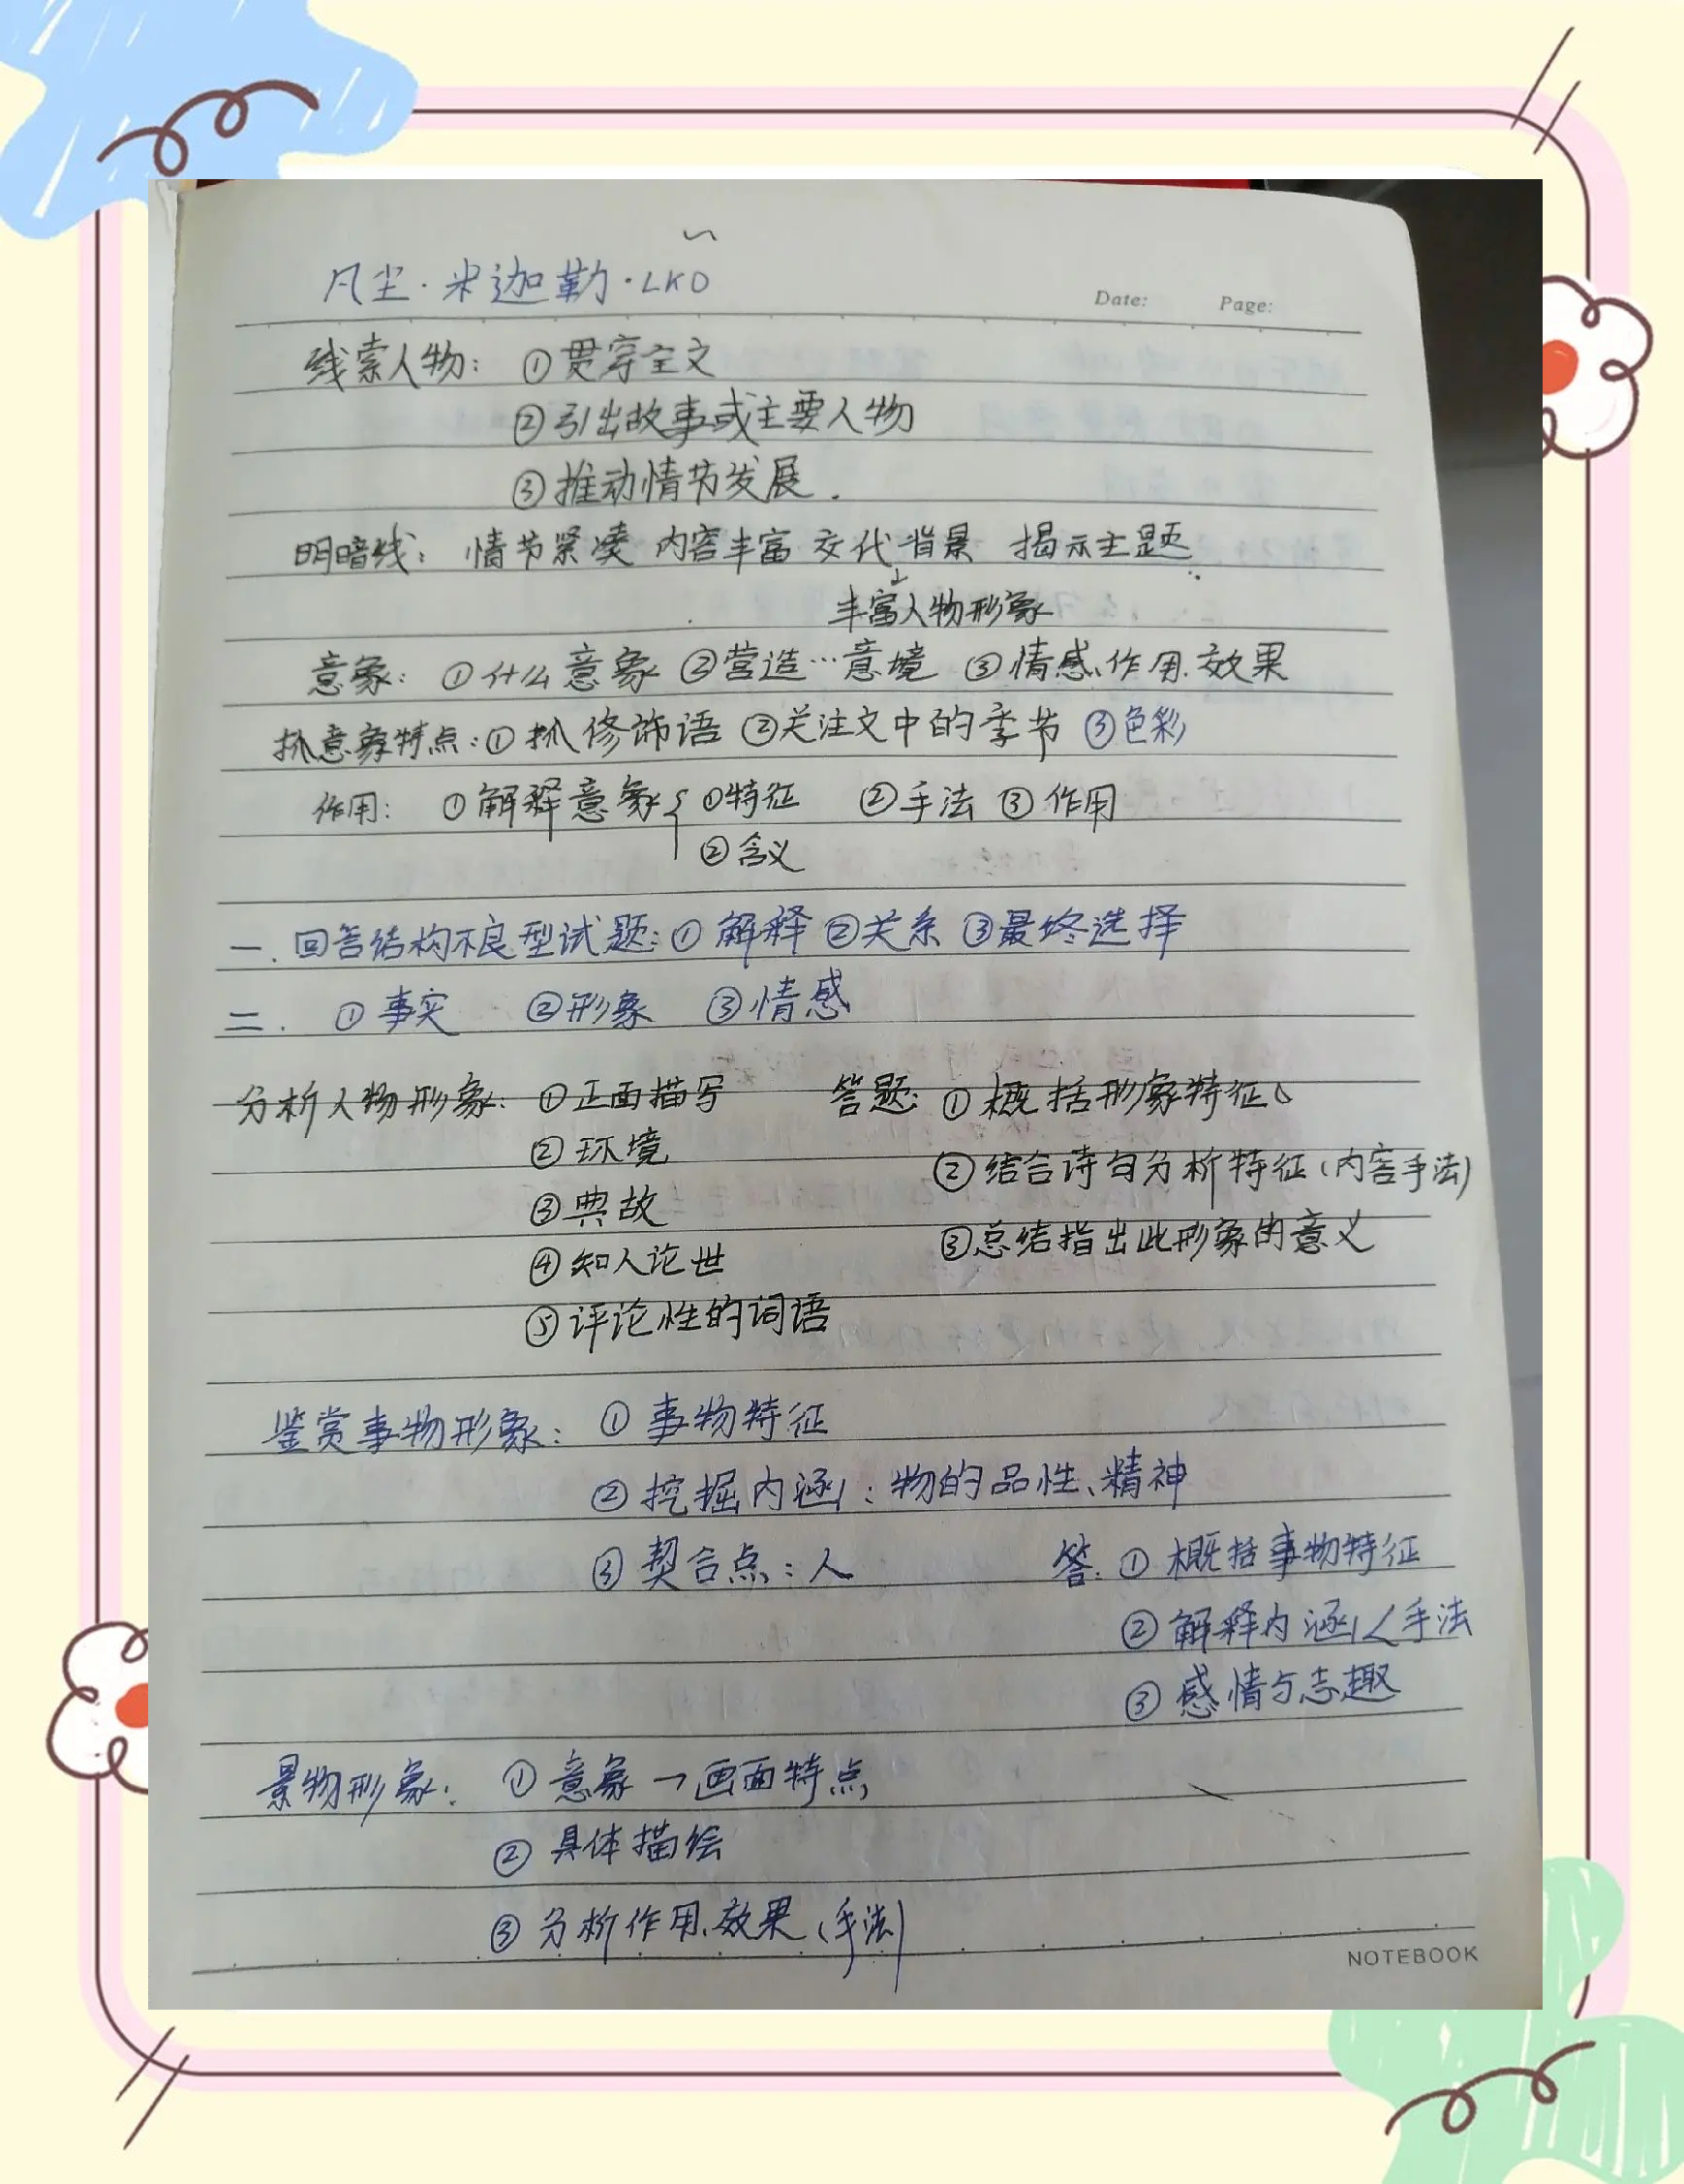 凡尘·米迦勒·LKD
Date: Page:
线索人物：①贯穿全文
②引出故事或主要人物
③推动情节发展.
明暗线：情节紧凑 内容丰富 交代背景 揭示主题
丰富人物形象
意象：①什么意象 ②营造…意境 ③情感、作用、效果
抓意象特点：①抓修饰语 ②关注文中的季节 ③色彩
作用：①解释意象{①特征 ②手法 ③作用
②含义
一.回答结构不良型试题：①解释 ②关系 ③最终选择
二. ①事实 ②形象 ③情感
分析人物形象：①正面描写 答题：①概括形象特征。
②环境 ②结合诗句分析特征(内容手法)
③典故 ③总结指出此形象的意义
④知人论世
⑤评论性的词语
鉴赏事物形象：①事物特征
②挖掘内涵：物的品性、精神
③契合点：人 答：①概括事物特征
②解释内涵 手法
③感情与志趣
景物形象：①意象→画面特点
②具体描绘
③分析作用、效果(手法)
NOTEBOOK